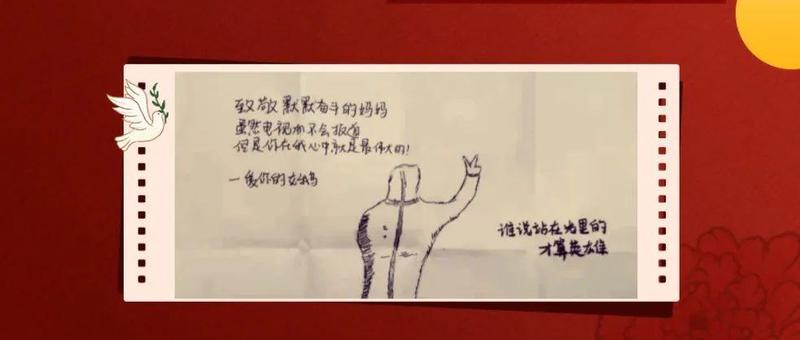 致敬默默奋斗的妈妈
虽然电视不会报道
但是你在我心中就是最伟大的!
—爱你的女
谁说站在光里的
才算英雄